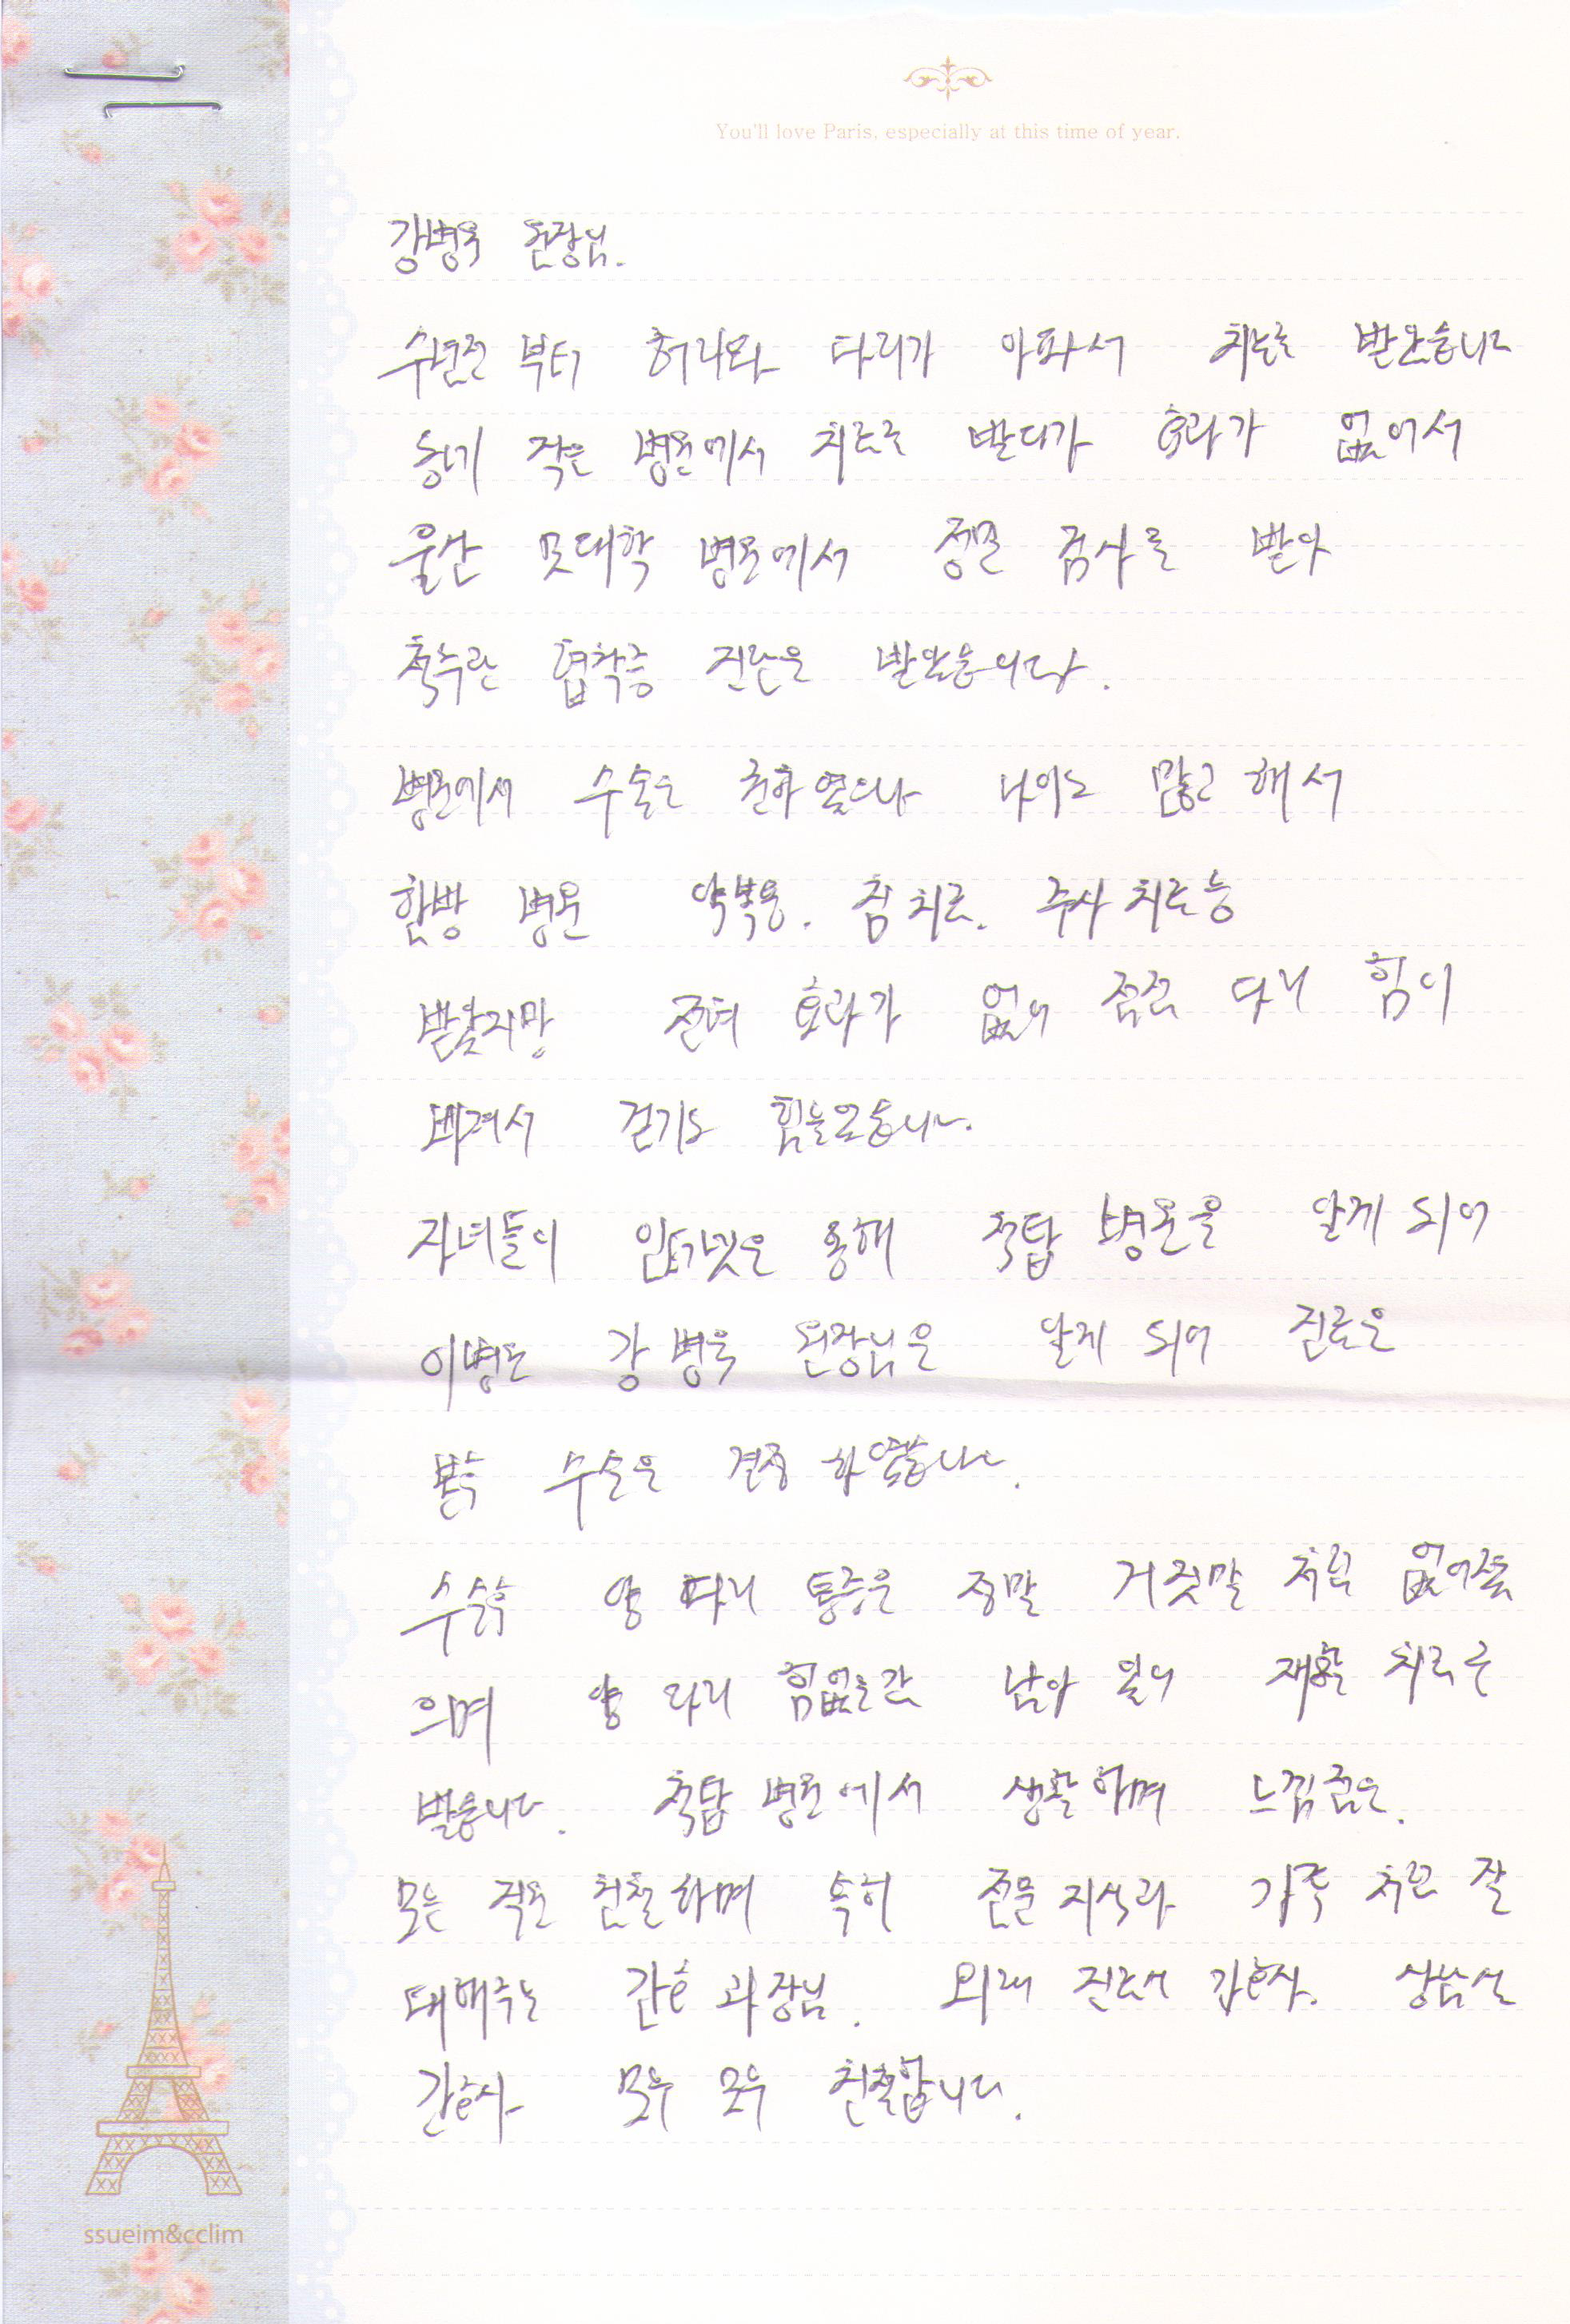 You'll love Paris, especially at this time of year.
강병욱 원장님.
수년전 부터 허리와 다리가 아파서 치료를 받았습니다
동네 작은 병원에서 치료를 받다가 효과가 없어서
울산 모대학 병원에서 정밀 검사를 받아
척추관 협착증 진단을 받았습니다.
병원에서 수술을 권하였으나 나이도 많고 해서
한방 병원 약복용. 침 치료. 주사 치료등
받았지만 전혀 효과가 없어 점점 다리 힘이
빠져서 걷기도 힘들었습니다.
자녀들이 인터넷을 통해 척탑 병원을 알게 되어
이병원 강병욱 원장님을 알게 되어 진료를
받후 수술을 결정 하였습니다.
수술후 양 다리 통증은 정말 거짓말 처럼 없어졌
으며 양 다리 힘없는것 남아 있어 재활 치료를
받습니다. 척탑 병원에서 생활하며 느낌점은.
모든 직원 친철하며 특히 전문지식과 가족 처럼 잘
대해주는 간호 과장님. 외래 진료서 간호사. 상담실
간호사 모두 모두 친철합니다.
ssueim&cclim